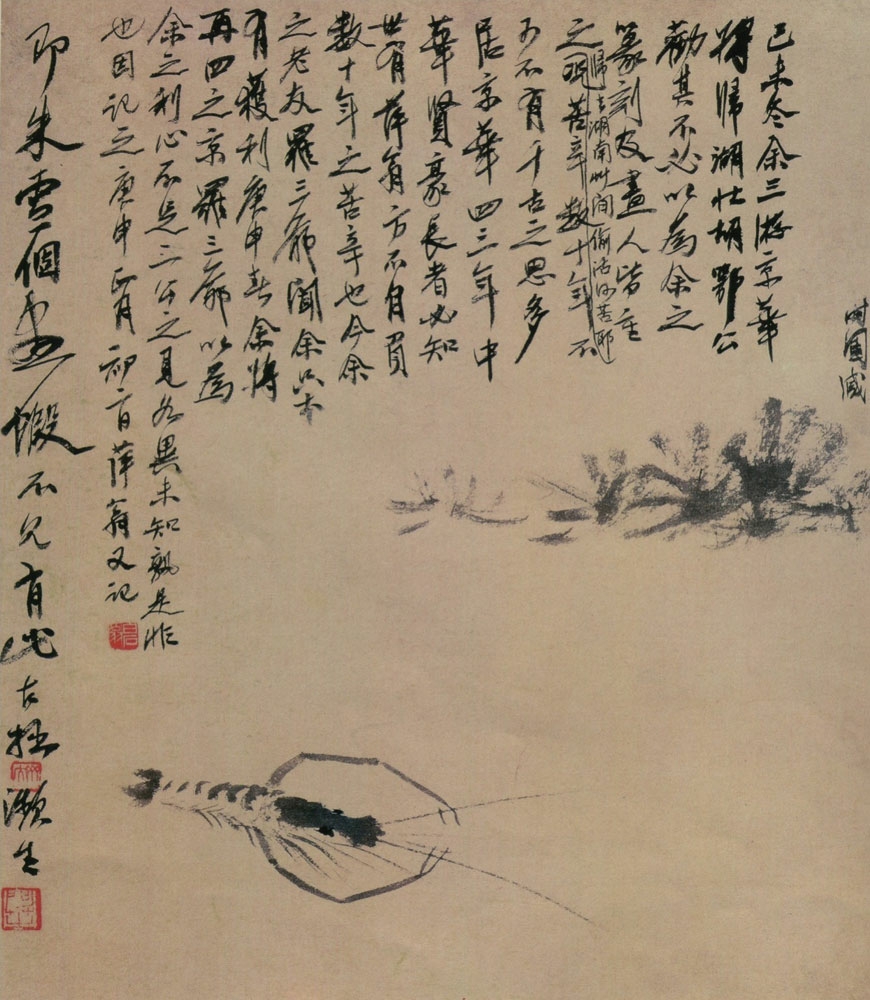 己未冬余三游京華
將歸湖北胡鄂公
勸其不必以為余之
篆刻及畫人皆重
之況苦辛數十年不
歸去湖南草間偷活何苦耶
可不有千古之思多
居京華四三年中
華賢豪長者必知
世有萍翁方不自負
數十年之苦辛也今余
之老友羅三爺聞余只本
有獲利庚申春余將
再四之京羅三爺以為
余之利心不足二公之見各異未知孰是非
也因記之庚申正月初六日萍翁又記
即朱雪個畫蝦不見有此古拙
瀕生